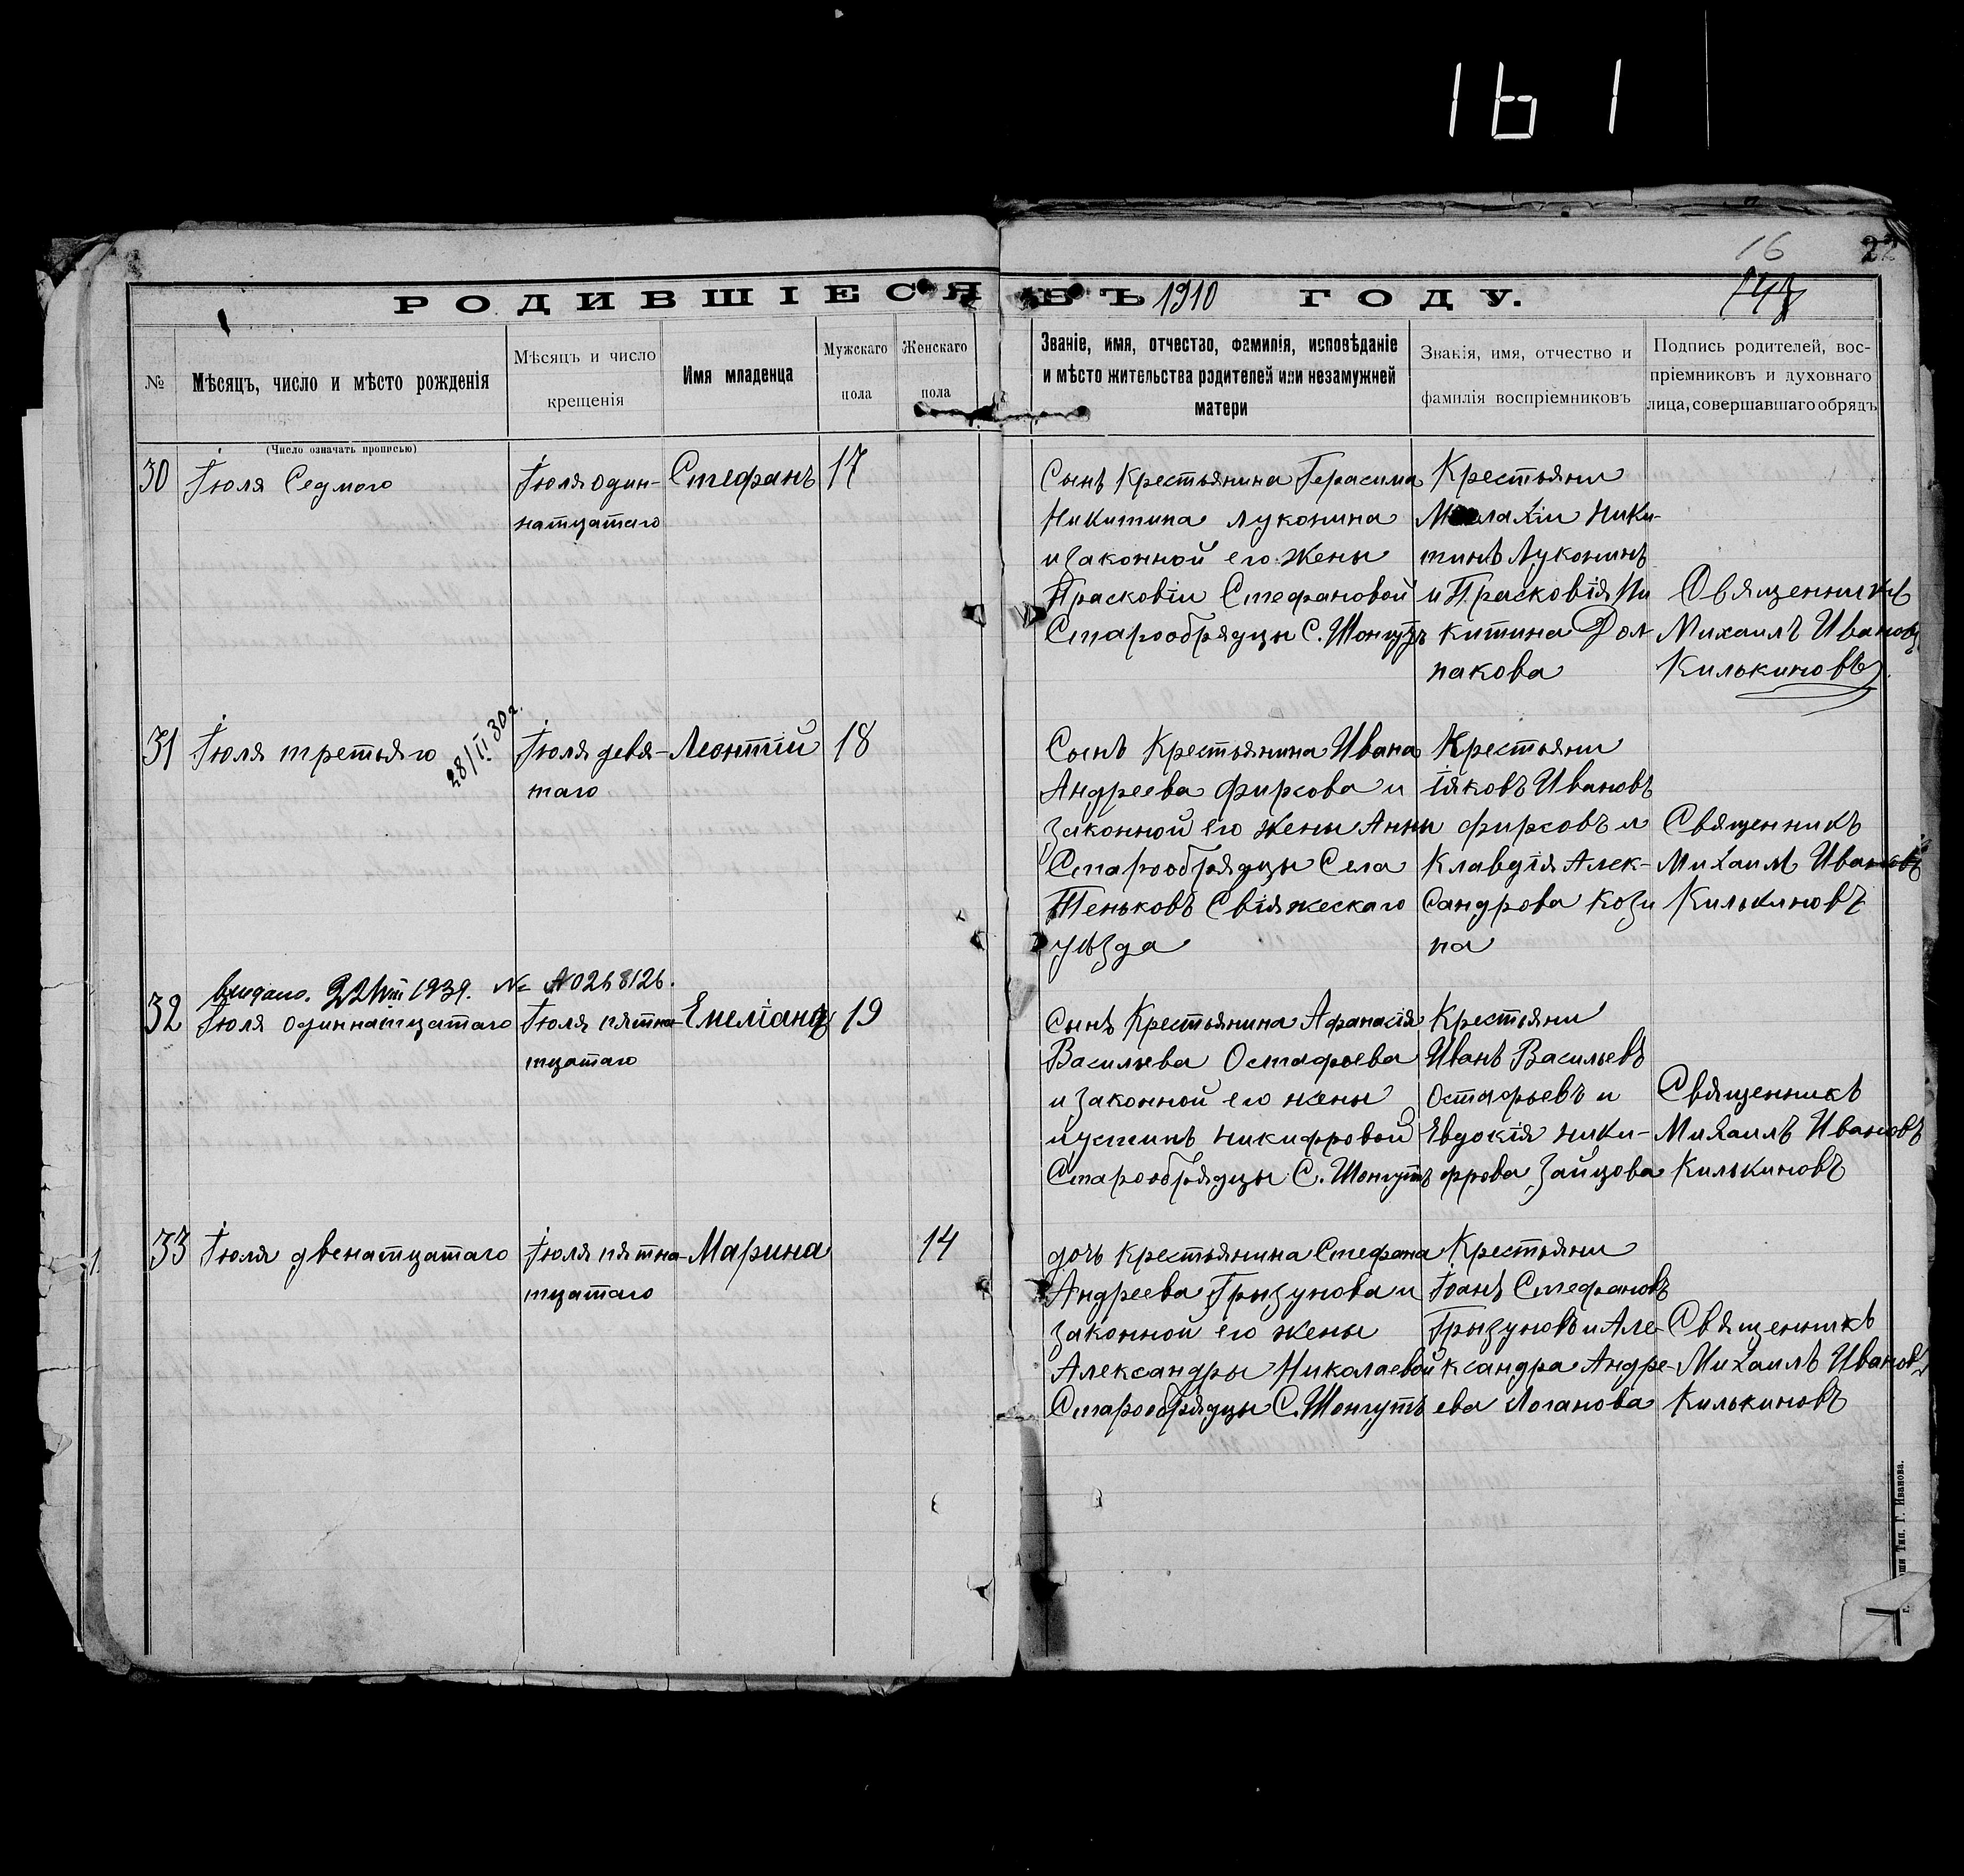 161
16
22
РОДИВШІЕСЯ ВЪ 1910 ГОДУ.
№
Мѣсяцъ, число и мѣсто рожденія
(Число означать прописью)
Мѣсяцъ и число
крещенія
Имя младенца
Мужскаго
пола
Женскаго
пола
Званіе, имя, отчество, фамилія, исповѣданіе
и мѣсто жительства родителей или незамужней
матери
Званія, имя, отчество и
фамилія воспріемниковъ
Подпись родителей, вос-
пріемниковъ и духовнаго
лица, совершавшаго обрядъ
30
Іюля Седмого
Іюля один-
натцатаго
Стефанъ
17
Сынъ Крестьянина Герасима
Никитина Луконина
и законной его жены
Прасковіи Стефановой
Старообрядцы С. Шонгутъ
Крестьяни
Малахіи Ники-
тинъ Луконинъ
и Прасковія Ни
китина Дол
пакова
Священникъ
Михаилъ Ивановъ
Килькиновъ
31
Іюля третьяго
28/II 30 г.
Іюля девя-
таго
Леонтій
18
Сынъ Крестьянина Ивана
Андреева Фирсова и
законной его жены Анны
Старообрядцы Села
Теньковъ Свіяжескаго
уѣзда
Крестьяни
Іяковъ Ивановъ
Фирсовъ и
Клавдія Алек-
сандрова Кози
на
Священникъ
Михаилъ Ивановъ
Килькиновъ
выдано. 22/VIII 1939. № А 0268126.
32
Іюля одиннатцатаго
Іюля пятна-
тцатаго
Емеліанъ
19
Сынъ Крестьянина Афанасія
Васильева Остафьева
и законной его жены
иустинѣ Никифровой
Старообрядцы С. Шонгутъ
Крестьяни
Иванъ Васильевъ
Остафьевъ и
Евдокія Ники-
фрова Зайцова
Священникъ
Михаилъ Ивановъ
Килькиновъ
33
Іюля двенатцатаго
Іюля пятна-
тцатаго
Марина
14
дочь Крестьянина Стефана
Андреева Грызунова и
законной его жены
Александры Николаевой
Старообрядцы С. Шонгутъ
Крестьяни
Іоанъ Стефановъ
Грызуновъ и Але-
ксандра Андре-
ева Логанова
Священникъ
Михаилъ Ивановъ
Килькиновъ
Тип. Г. Иванова.